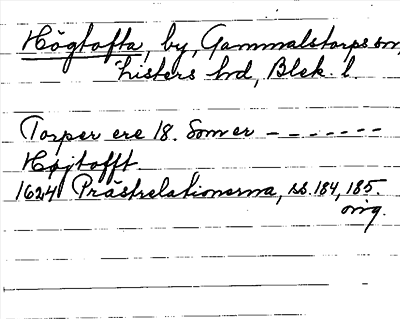 Högtofta, by, Gammalstorps sn,
Listers hd, Blek. l.
Torper ere 18. Som er -------
Højtofft
1624 Prästrelationerna, ss. 184, 185.
orig.